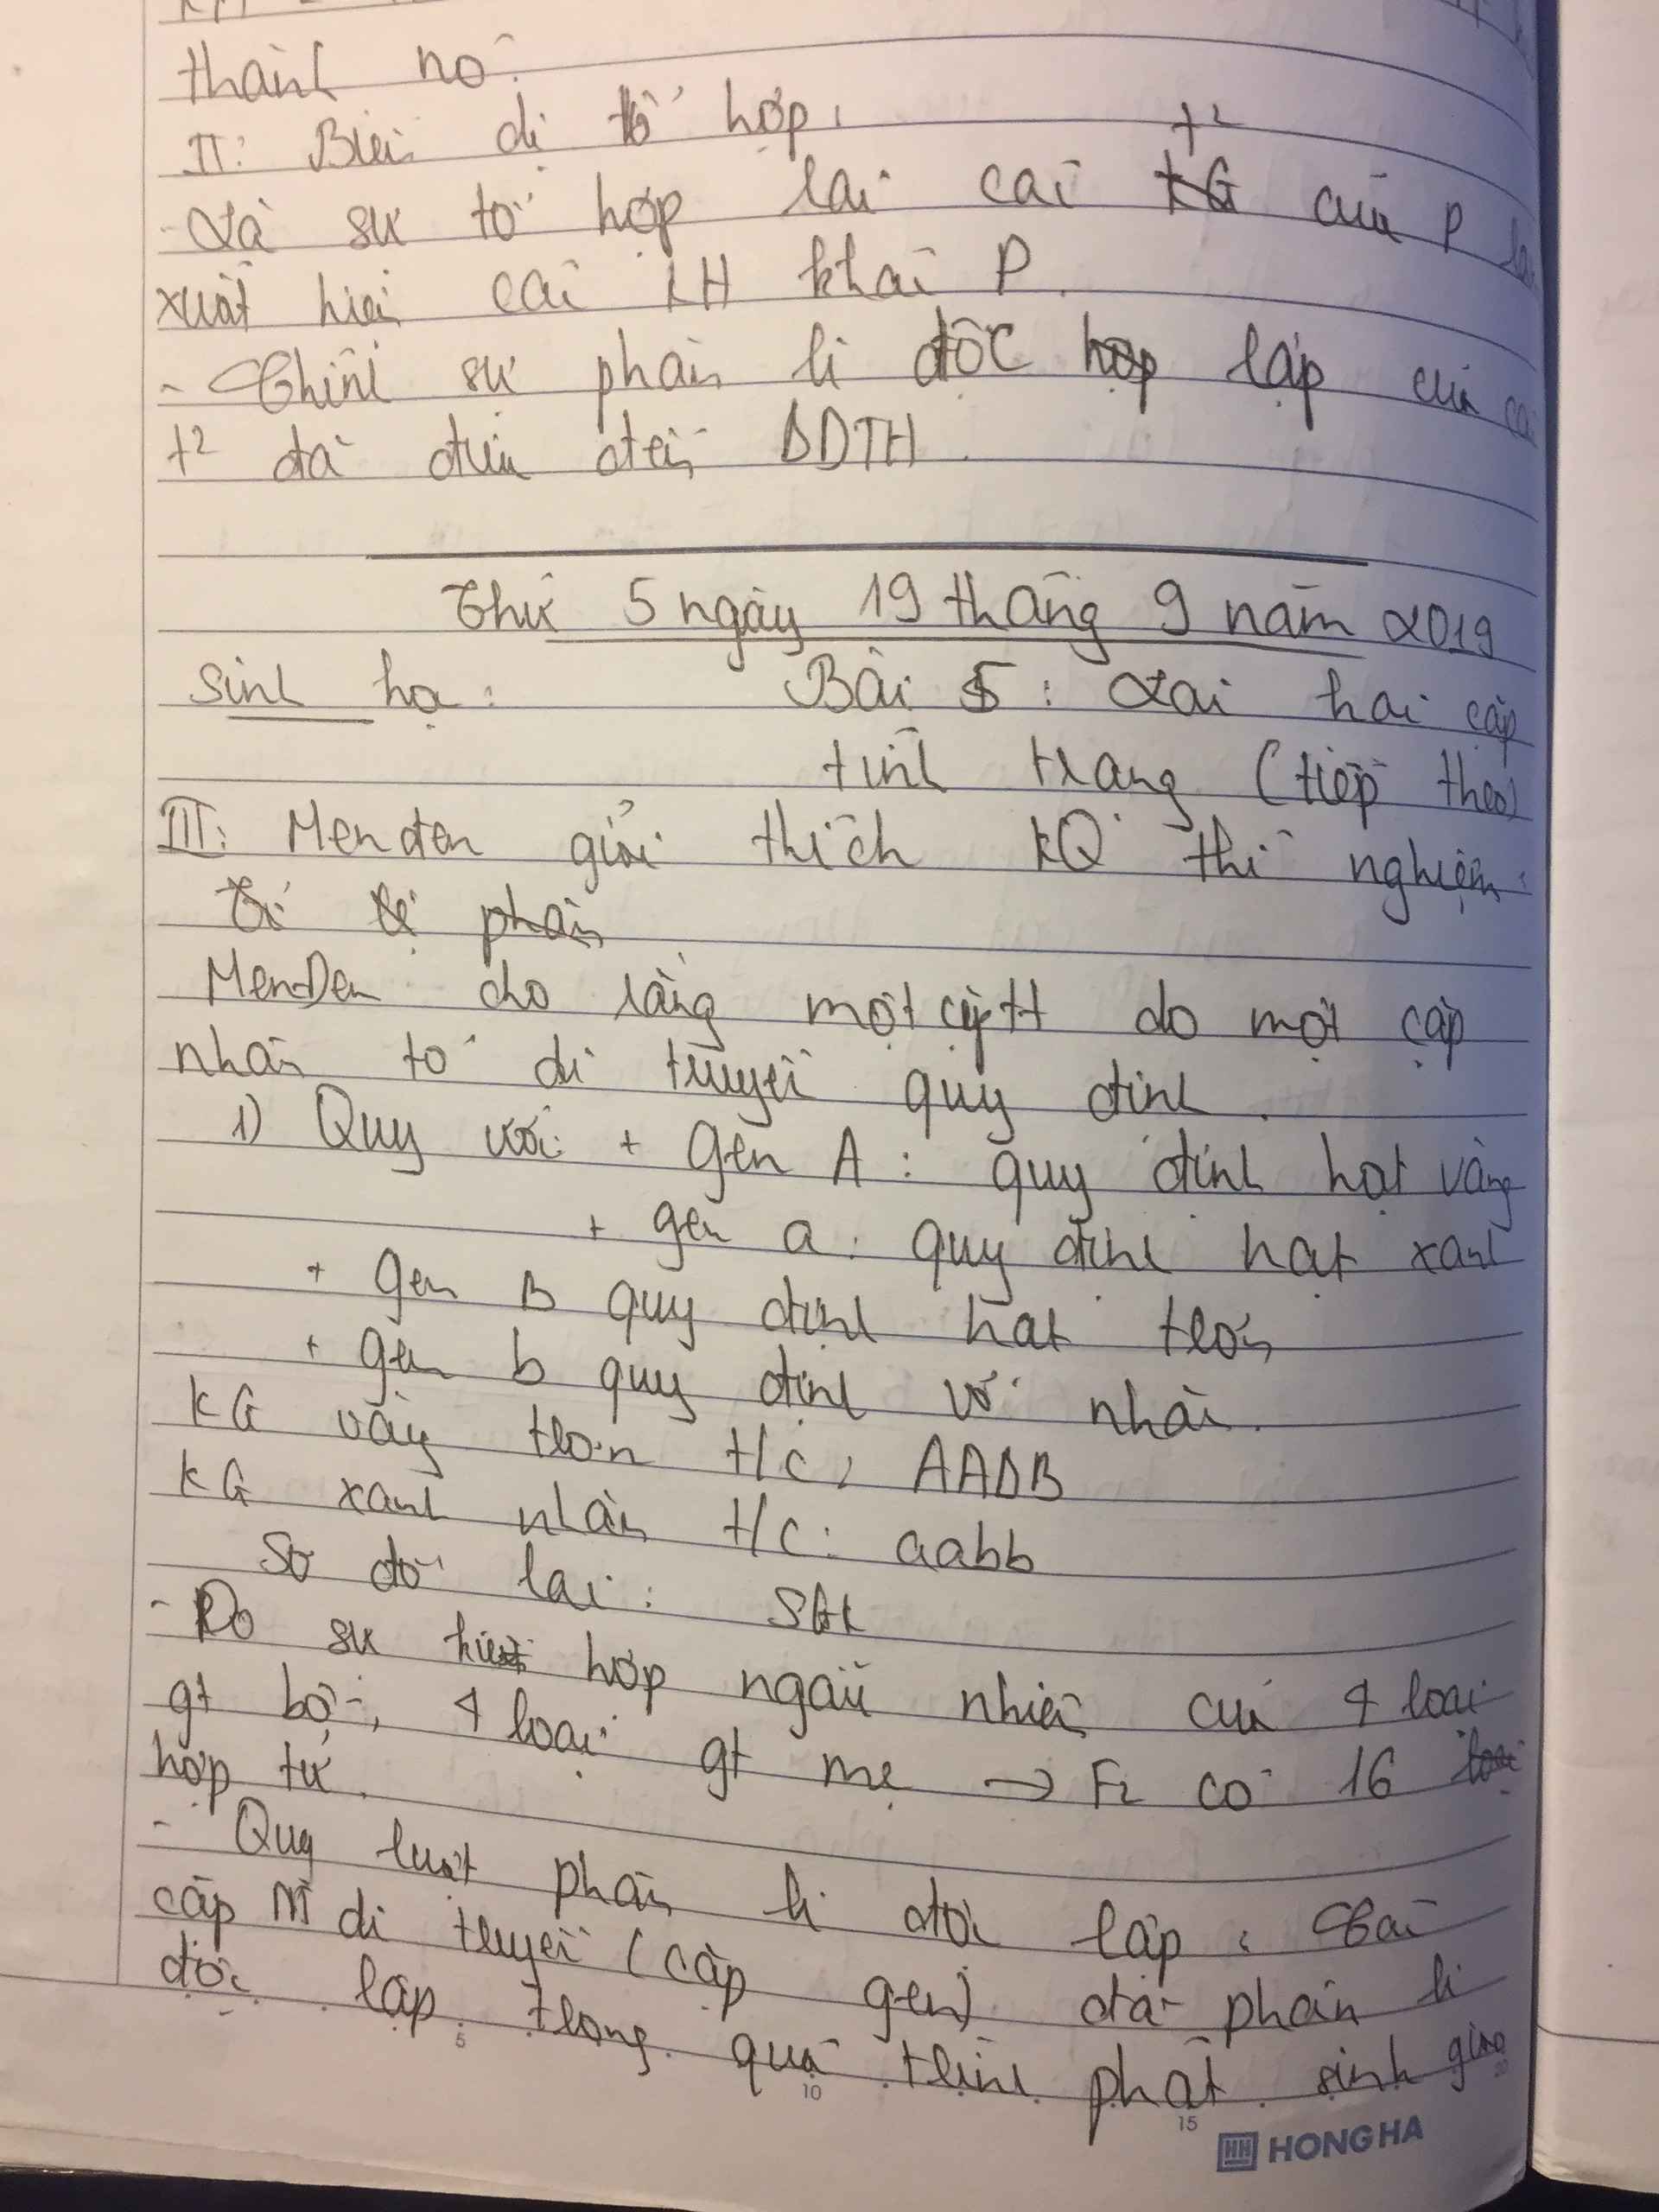 thành nó.
II: Biến dị tổ hợp:
t²
- Là sự tổ hợp lại các KG của P
xuất hiện các KH khác P.
- Chính sự phân li độc hợp lập của
t² đã đưa đến BDTH.
Thứ 5 ngày 19 tháng 9 năm 2019
Sinh học: Bài 5: Lai hai cặp
tính trạng (tiếp theo)
III: Menđen giải thích KQ thí nghiệm:
Từ tỉ phân
MenDen cho rằng một cặp tt do một cặp
nhân tố di truyền quy định.
1) Quy ước: + gen A: quy định hạt vàng
+ gen a: quy định hạt xanh
+ gen B quy định hạt trơn
+ gen b quy định vỏ nhăn.
KG vàng trơn t/c: AABB
KG xanh nhăn t/c: aabb
Sơ đồ lai: SGK
- Do sự kết hợp ngẫu nhiên của 4 loại
gt bố, 4 loại gt mẹ → F2 có 16 loại
hợp tử.
- Quy luật phân li độc lập: Các
cặp NT di truyền (cặp gen) đã phân li
độc lập trong quá trình phát sinh giao
5 10 15 20
HH HONG HA